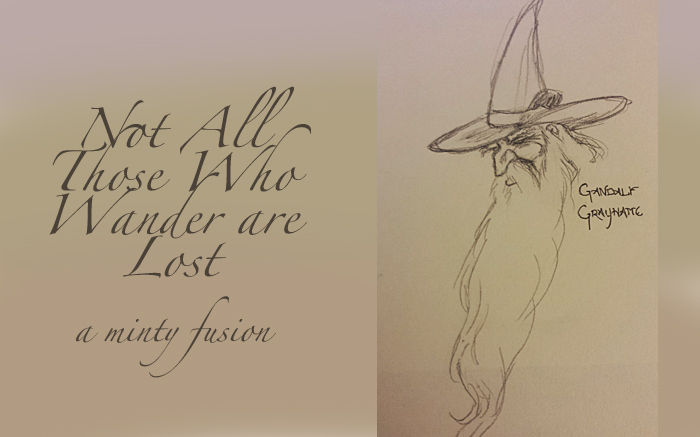 Not All
Those Who
Wander are
Lost
a minty fusion
GANDALF
GRAYHAME